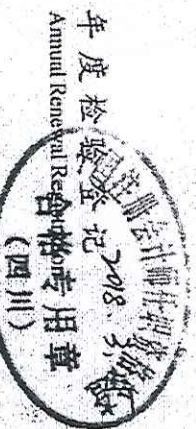 年度检验登记
Annual Renewal Registration
2018.3
注册会计师任职资格
合格专用章
(四川)